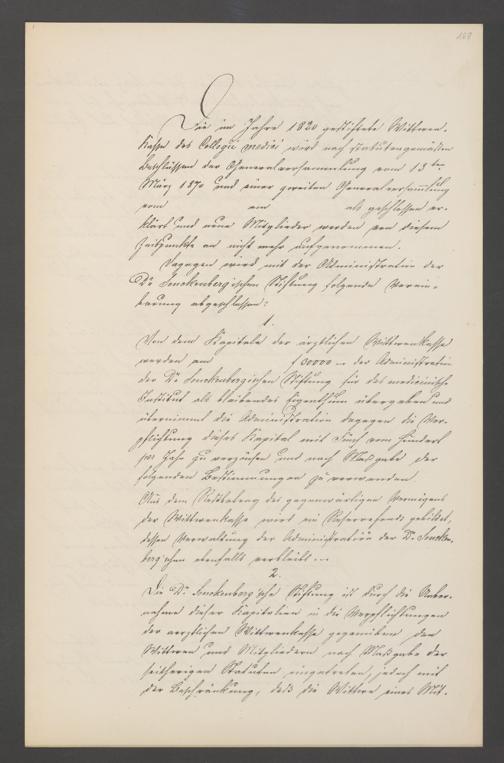 168
Die im Jahre 1820 gestiftete Wittwen-
Kasse des Collegii medici wird nach statutengemäßen
Beschlüssen der Generalversammlung vom 13ten
März 1870 und einer zweiten Generalversammlung
vom am als geschlossen er-
klärt und neue Mitglieder werden von diesem
Zeitpunkte an nicht mehr aufgenommen.
Dagegen wird mit der Administration der
Dr. Senckenberg'schen Stiftung folgende Verein-
barung abgeschlossen:
1.
Von dem Kapitale der ärztlichen Wittwenkasse
werden am f 50000 — der Administration
der Dr. Senckenberg'schen Stiftung für das medicinische
Institut als bleibendes Eigenthum übergeben und
übernimmt die Administration dagegen die Ver-
pflichtung dieses Kapital mit fünf vom Hundert
pr Jahr zu verzinsen und nach Maßgabe der
folgenden Bestimmungen zu verwenden.
Aus dem Restbetrag des gegenwärtigen Vermögens
der Wittwenkasse wird ein Reservefonds gebildet,
dessen Verwaltung der Administration der Dr. Sencken-
berg'schen ebenfalls verbleibt. —
2.
Die Dr. Senckenberg'sche Stiftung ist durch die Ueber-
nahme dieser Kapitalien in die Verpflichtungen
der ärztlichen Wittwenkasse gegenüber den
Wittwen und Mitgliedern nach Maßgabe der
seitherigen Statuten, eingetreten, jedoch mit
der Beschränkung, daß die Wittwe eines Mit-